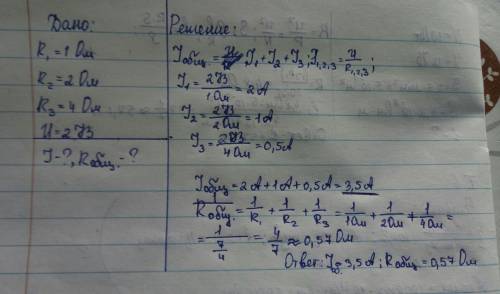 Дано:
R₁=1 Ом
R₂=2 Ом
R₃=4 Ом
U=2 В
I-?, Rобщ.-?
Решение:
Iобщ.= I₁+I₂+I₃; I₁,₂,₃=U/R₁,₂,₃;
I₁=2В/1Ом=2А
I₂=2В/2Ом=1А
I₃=2В/4Ом=0,5А
Iобщ=2А+1А+0,5А=3,5А
Rобщ.=1/R₁+1/R₂+1/R₃=1/1Ом+1/2Ом+1/4Ом=
=1/(7/4)=4/7≈0,57Ом
Ответ: Iоб=3,5А; Rобщ=0,57 Ом